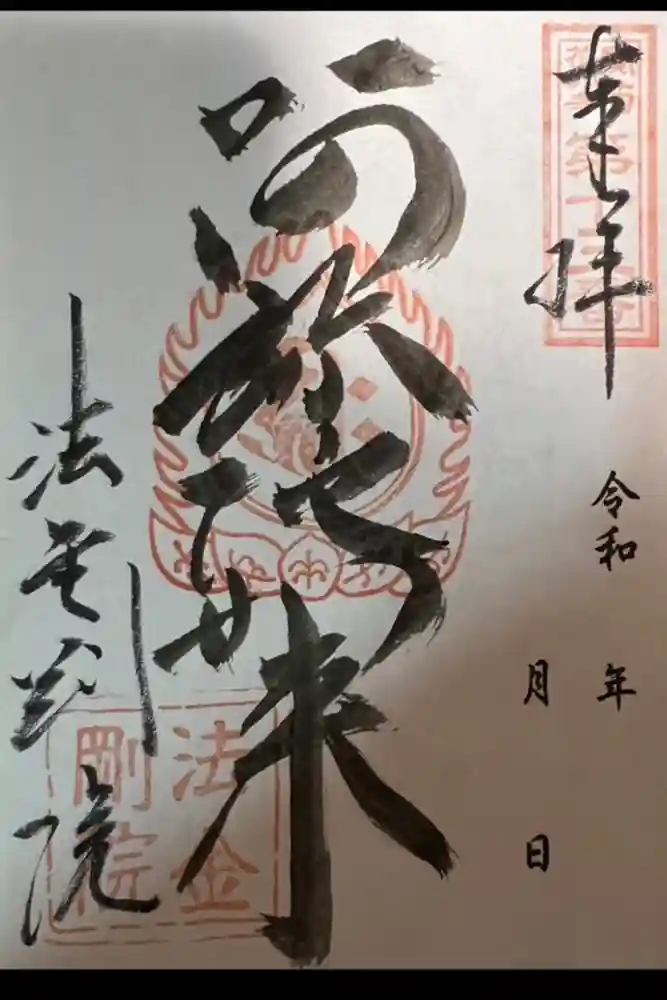 奉拝
第十三番
令和 年
月 日
阿弥陀如来
法金剛院
法金
剛院